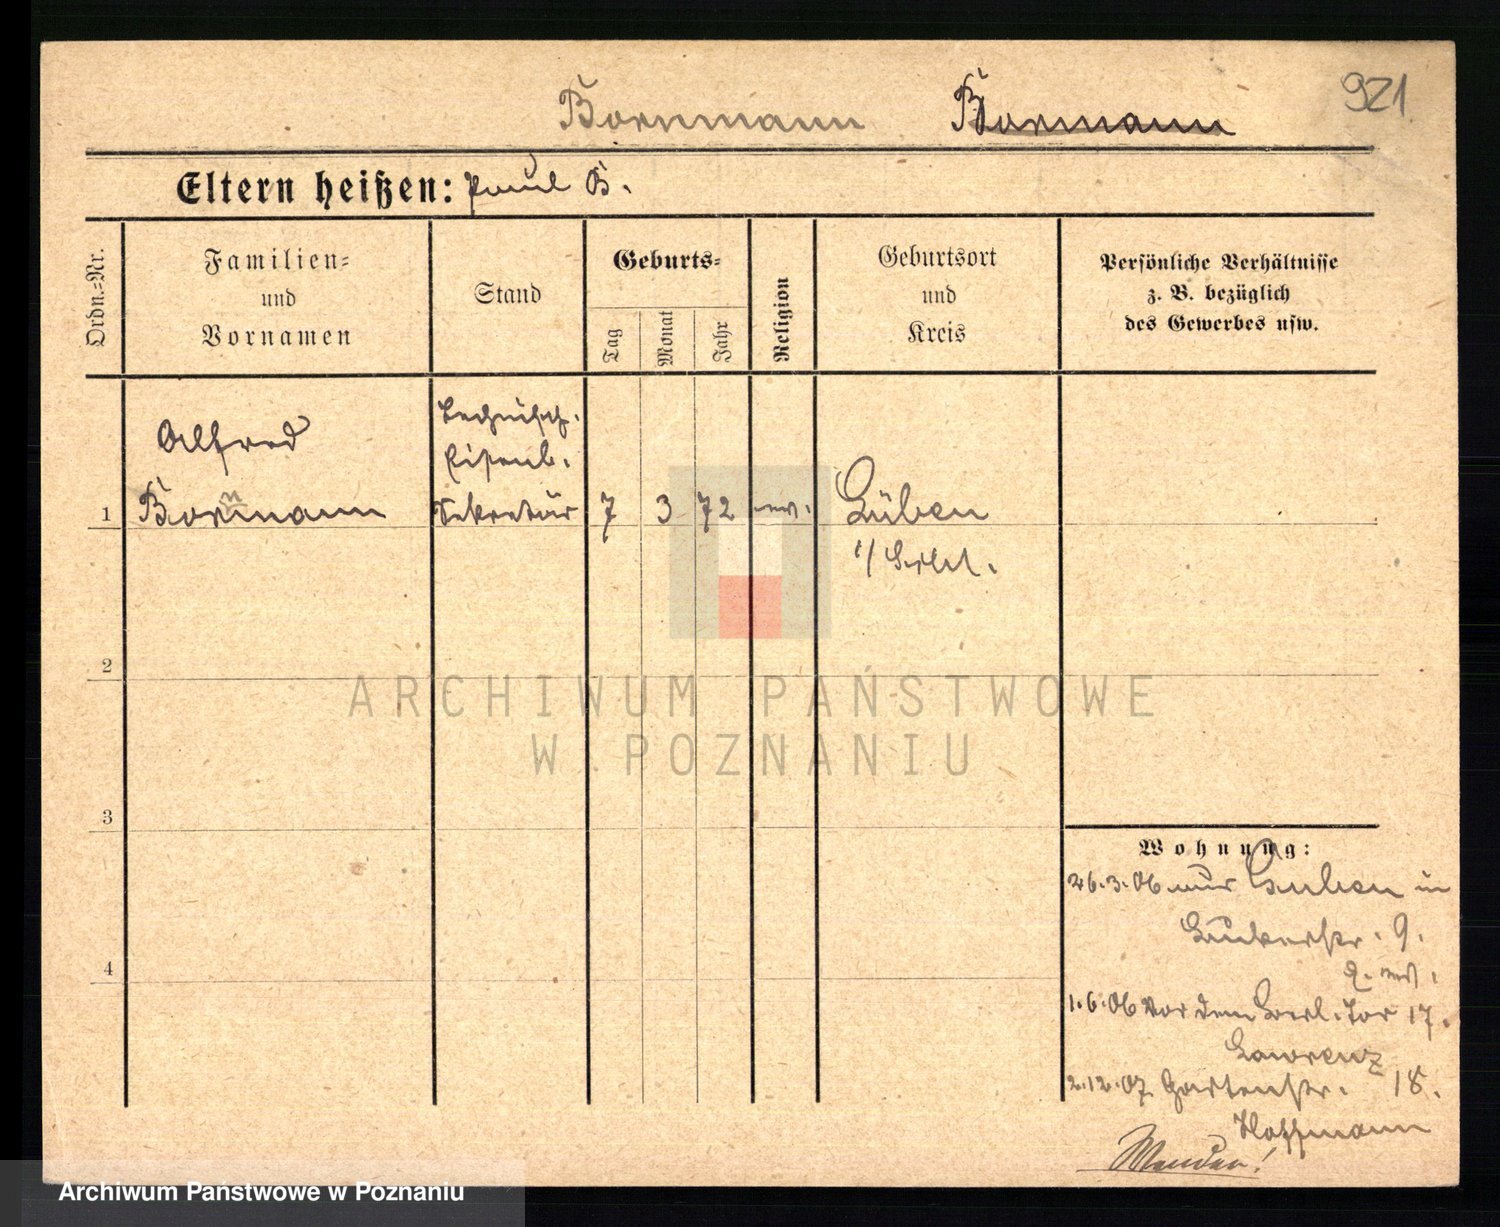 921
Bornmann Bormann
Eltern heißen: Paul B.
Ordn.-Nr.
Familien-
und
Vornamen
Stand
Geburts-
Tag
Monat
Jahr
Religion
Geburtsort
und
Kreis
Persönliche Verhältnisse
z. B. bezüglich
des Gewerbes usw.
Alfred
Technisch.
Eisenb.
1 Bornmann Sekretär 7 3 72 ev. Lüben
i/Schl.
2
3
4
Wohnung:
26.3.06 aus Guben in
9.
1.6.06 Vor dem Berl. Tor 17.
Lawrenz
2.12.07 Gartenstr. 18.
Hoffmann
Wenden!
ARCHIWUM PAŃSTWOWE
W POZNANIU
Archiwum Państwowe w Poznaniu